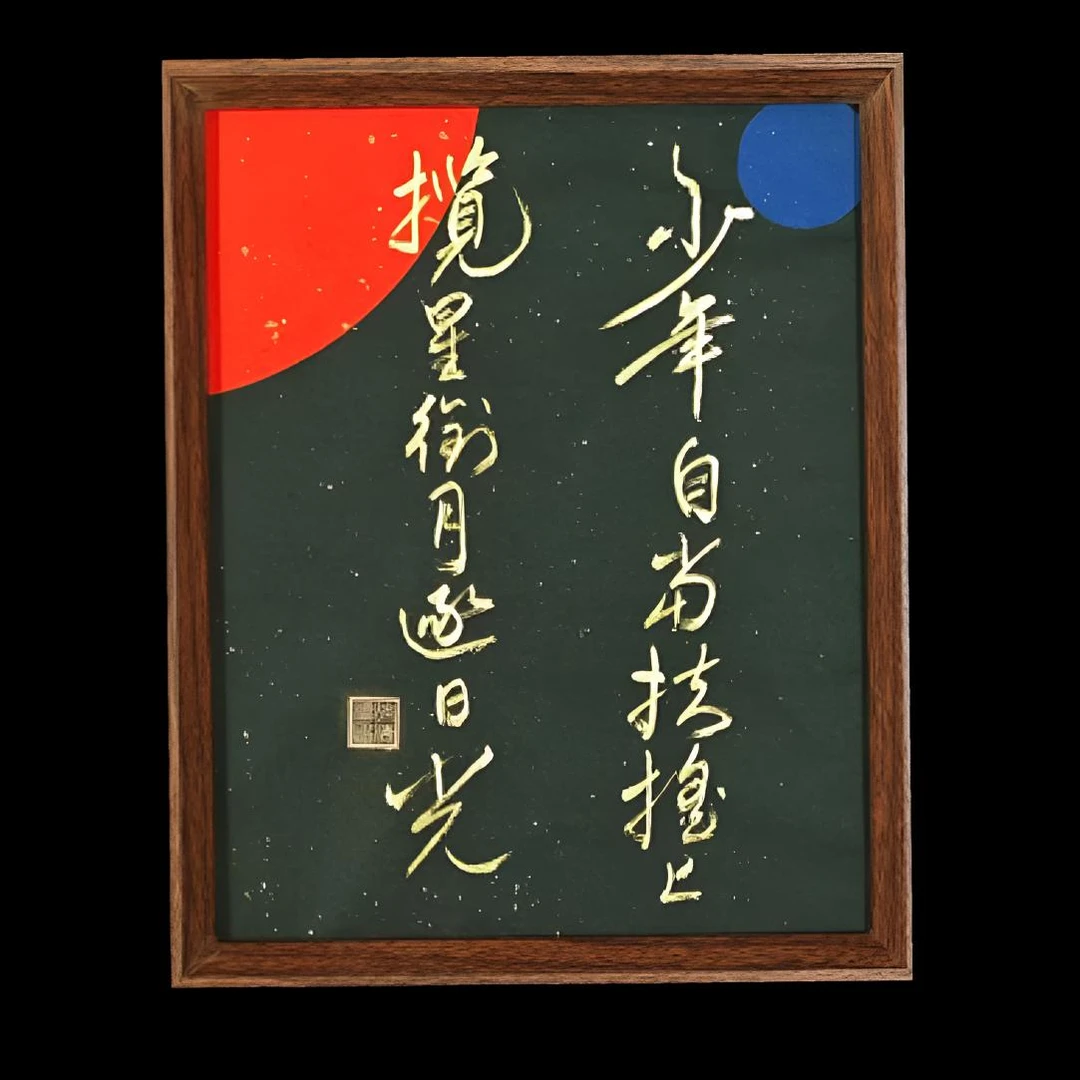 少年自当扶摇上
揽星衔月逐日光